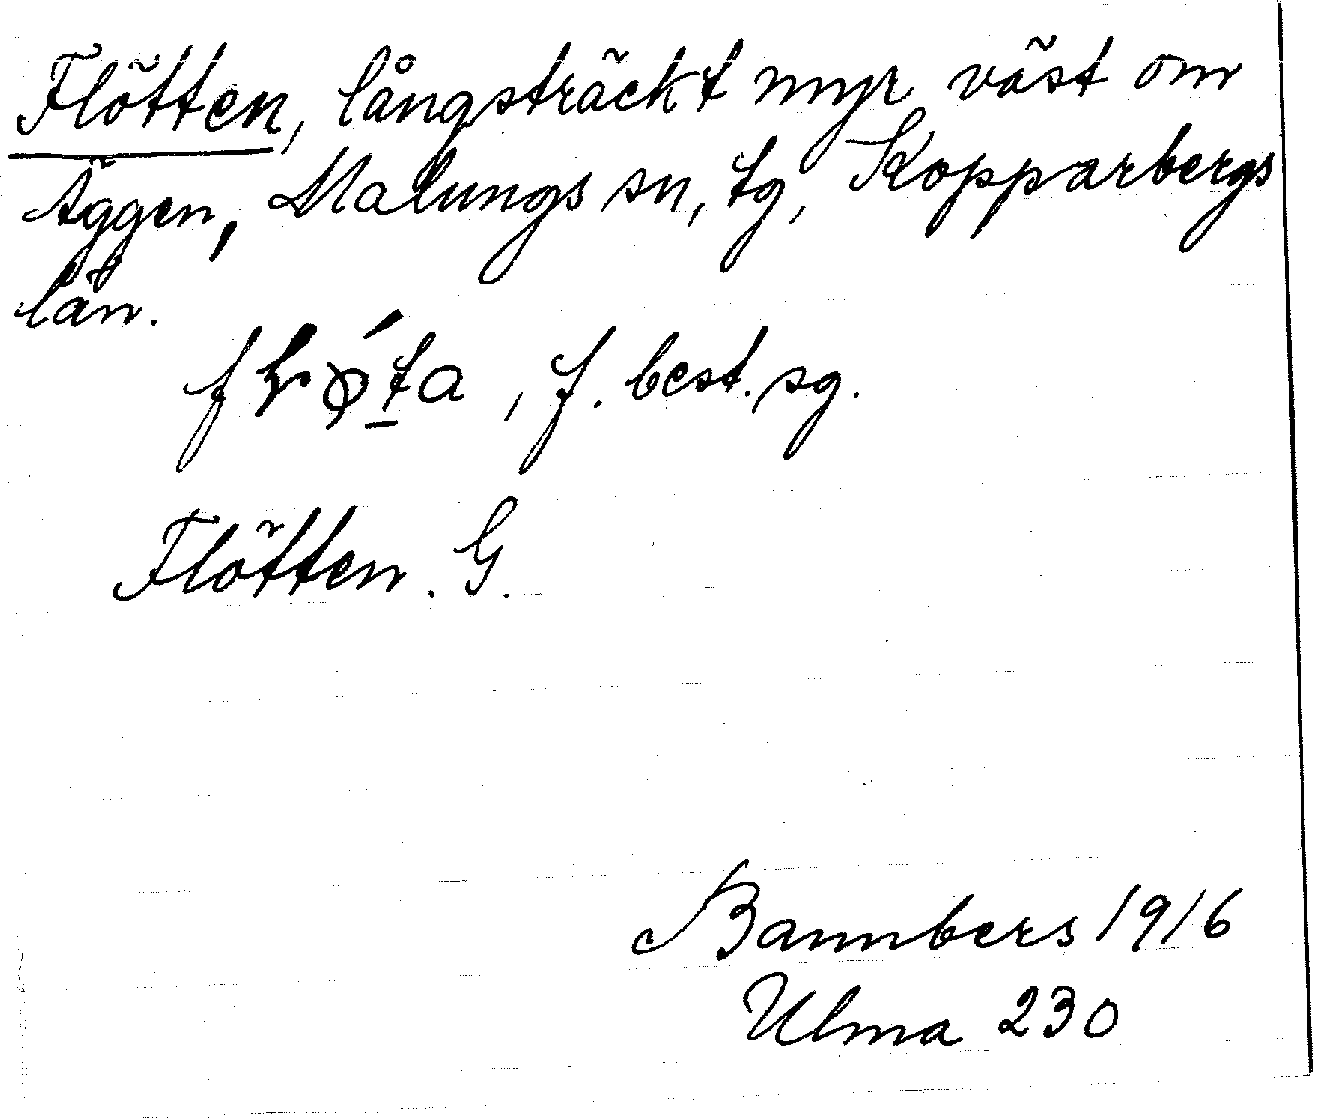 Flötten, långsträckt myr väst om
Äggen, Malungs sn, tg, Kopparbergs
län.
f. best. sg.
Flötten. G.
Bannbers 1916
Ulma 230